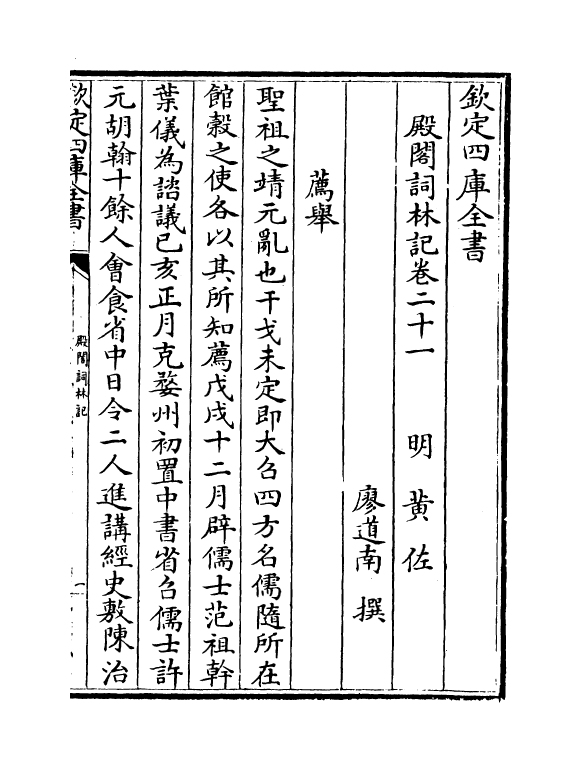 欽定四庫全書
殿閣詞林記卷二十一
明 黄佐
廖道南 撰
薦舉
聖祖之靖元亂也干戈未定即大召四方名儒隨所在
館糓之使各以其所知薦戊戌十二月辟儒士范祖幹
葉儀為諮議己亥正月克婺州初置中書省召儒士許
元胡翰十餘人會食省中日令二人進講經史敷陳治
欽定四庫全書
殿閣詞林記
一